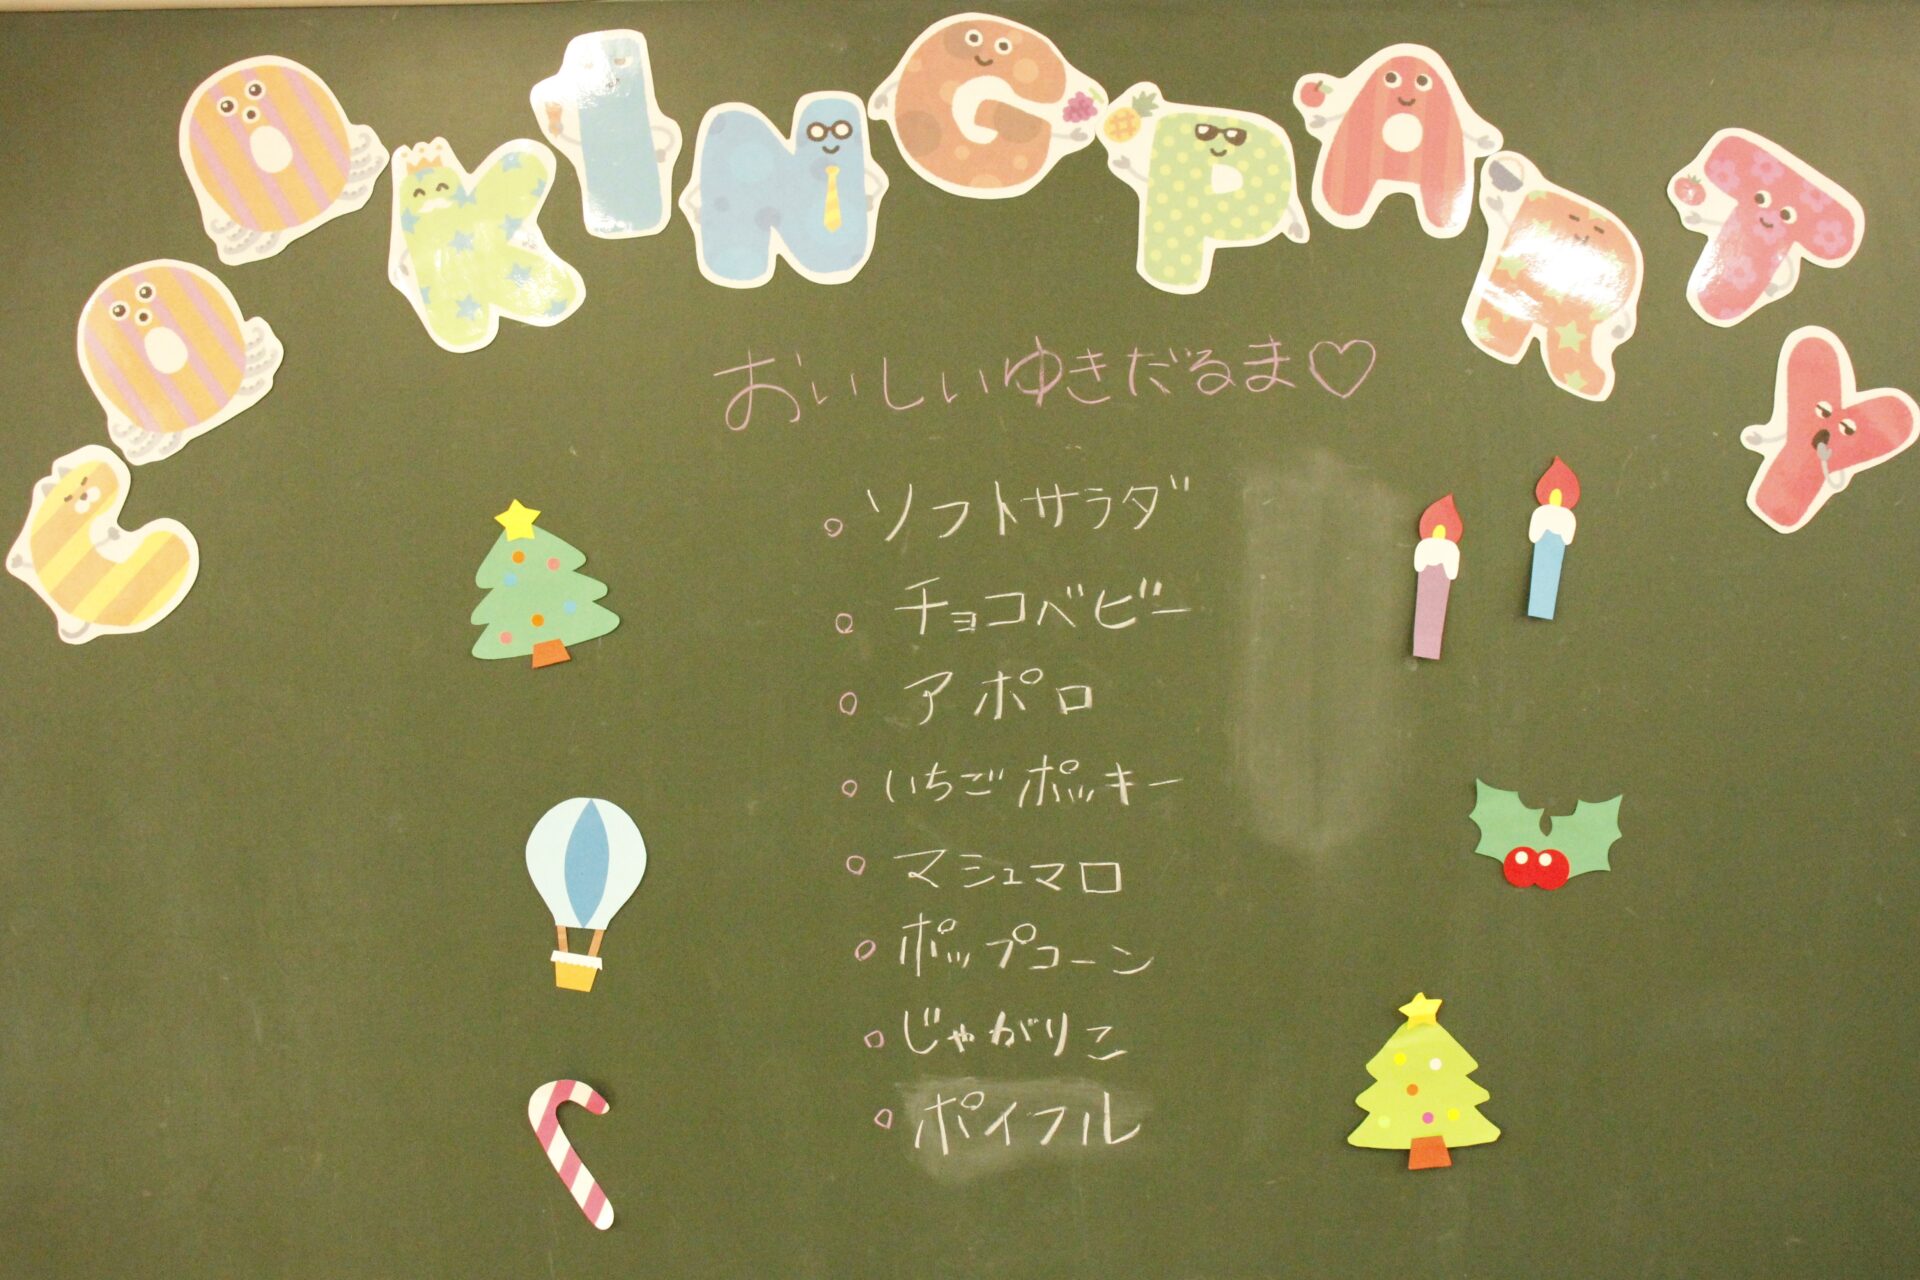 COOKING PARTY
おいしいゆきだるま♡
○ ソフトサラダ
○ チョコベビー
○ アポロ
○ いちごポッキー
○ マシュマロ
○ ポップコーン
○ じゃがりこ
○ ポイフル